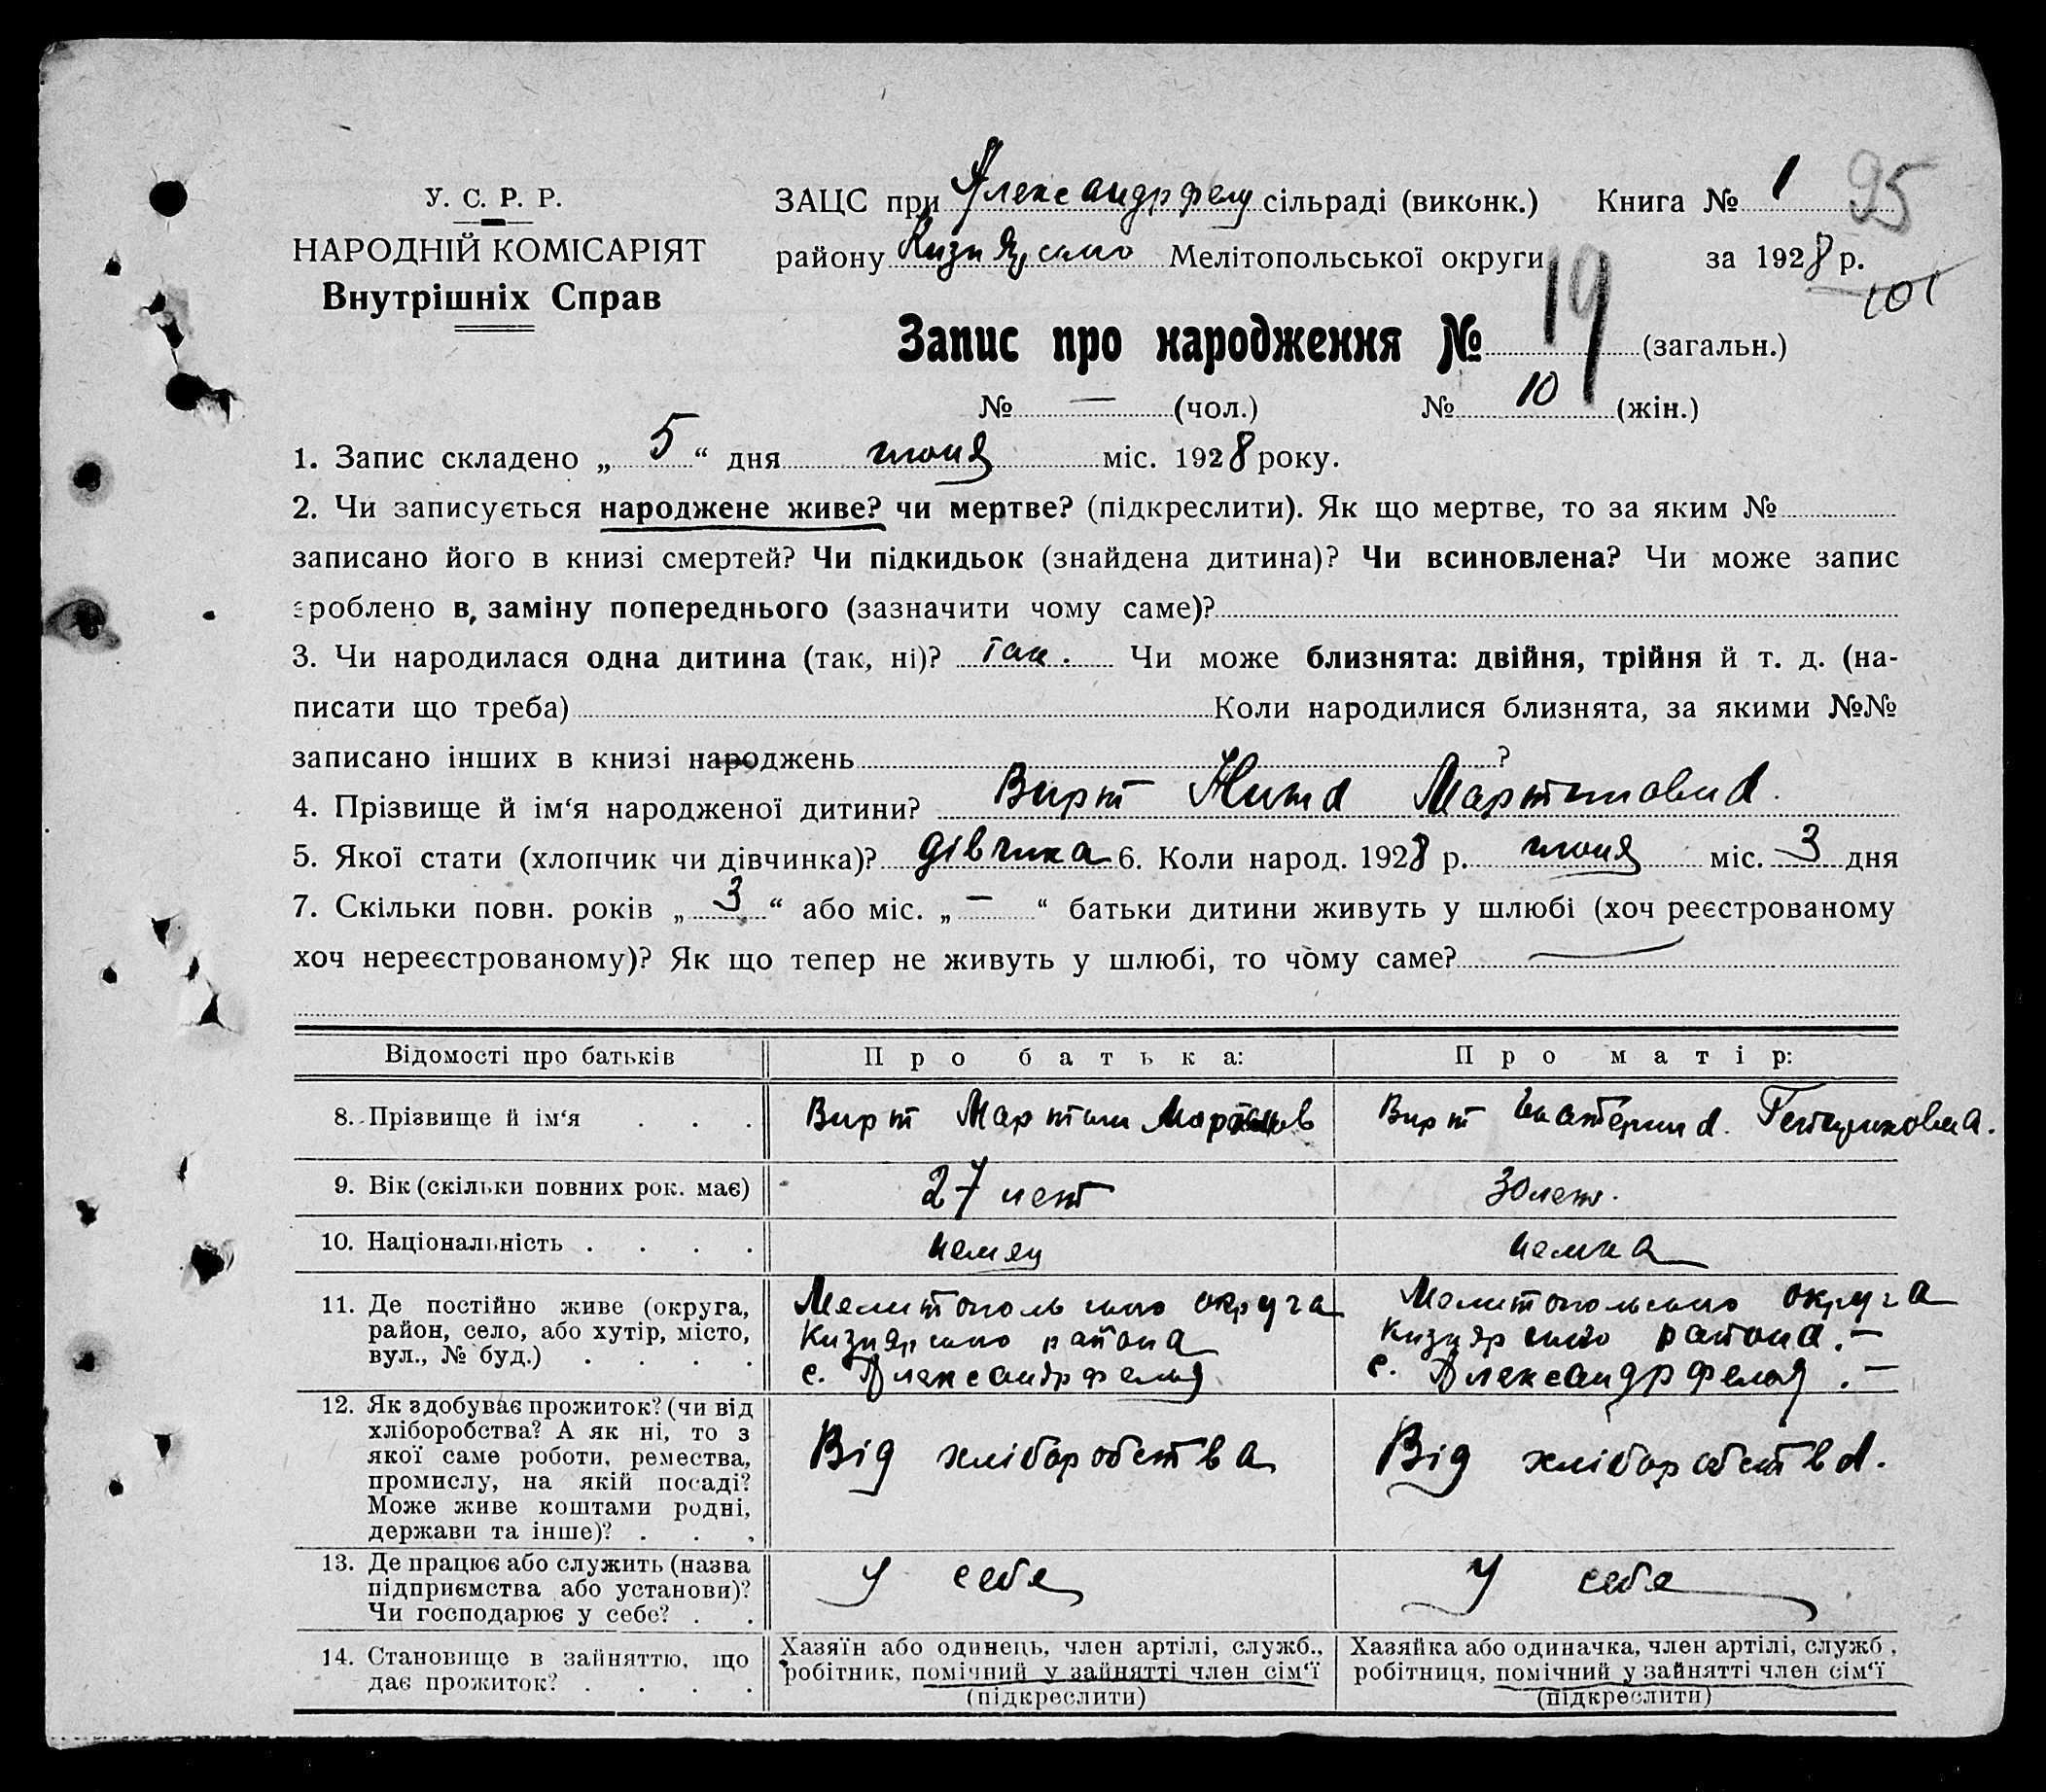 У. С. Р. Р.
НАРОДНІЙ КОМІСАРІЯТ
Внутрішніх Справ
ЗАЦС при Александрфельд сільраді (виконк.) Книга № 1 95
району Кизиярсько Мелітопольської округи за 1928 р.
101
Запис про народження № 19 (загальн.)
№ — (чол.) № 10 (жін.)
1. Запис складено „ 5 “ дня июня міс. 1928 року.
2. Чи записується народжене живе? чи мертве? (підкреслити). Як що мертве, то за яким №
записано його в книзі смертей? Чи підкидьок (знайдена дитина)? Чи всиновлена? Чи може запис
зроблено в, заміну попереднього (зазначити чому саме)?
3. Чи народилася одна дитина (так, ні)? так. Чи може близнята: двійня, трійня й т. д. (на-
писати що треба) Коли народилися близнята, за якими №№
записано інших в книзі народжень ?
4. Прізвище й ім‘я народженої дитини? Вирт Нина Мартиновна.
5. Якої стати (хлопчик чи дівчинка)? дівчика 6. Коли народ. 1928 р. июня міс. 3 дня
7. Скільки повн. років „ 3 “ або міс. „ — “ батьки дитини живуть у шлюбі (хоч реєстрованому
хоч нереєстрованому)? Як що тепер не живуть у шлюбі, то чому саме? —
Відомості про батьків
Про батька:
Про матір:
8. Прізвище й ім‘я . . .
Вирт Мартин Мартинов
Вирт Екатерина. Генриховна.
9. Вік (скільки повних рок. має)
27 лет
30 лет.
10. Національність . . . .
немец
немка
11. Де постійно живе (округа,
район, село, або хутір, місто,
вул., № буд.) . . . .
Мелитопольсько округа
Кизиярсько района
с. Александрфельд
Мелитопольсько округа
Кизиярсько района. —
с. Александрфельд. —
12. Як здобуває прожиток? (чи від
хліборобства? А як ні, то з
якої саме роботи, ремества,
промислу, на якій посаді?
Може живе коштами родні,
держави та інше)? . . .
Від хліборобства
Від хліборобства.
13. Де працює або служить (назва
підприємства або установи)?
Чи господарює у себе? . .
У себе
У себе
14. Становище в зайняттю, що
дає прожиток? . . . .
Хазяїн або одинець, член артілі, служб.,
робітник, помічний у зайнятті член сім‘ї
(підкреслити)
Хазяйка або одиначка, член артілі, служб,
робітниця, помічний у зайнятті член сім‘ї
(підкреслити)